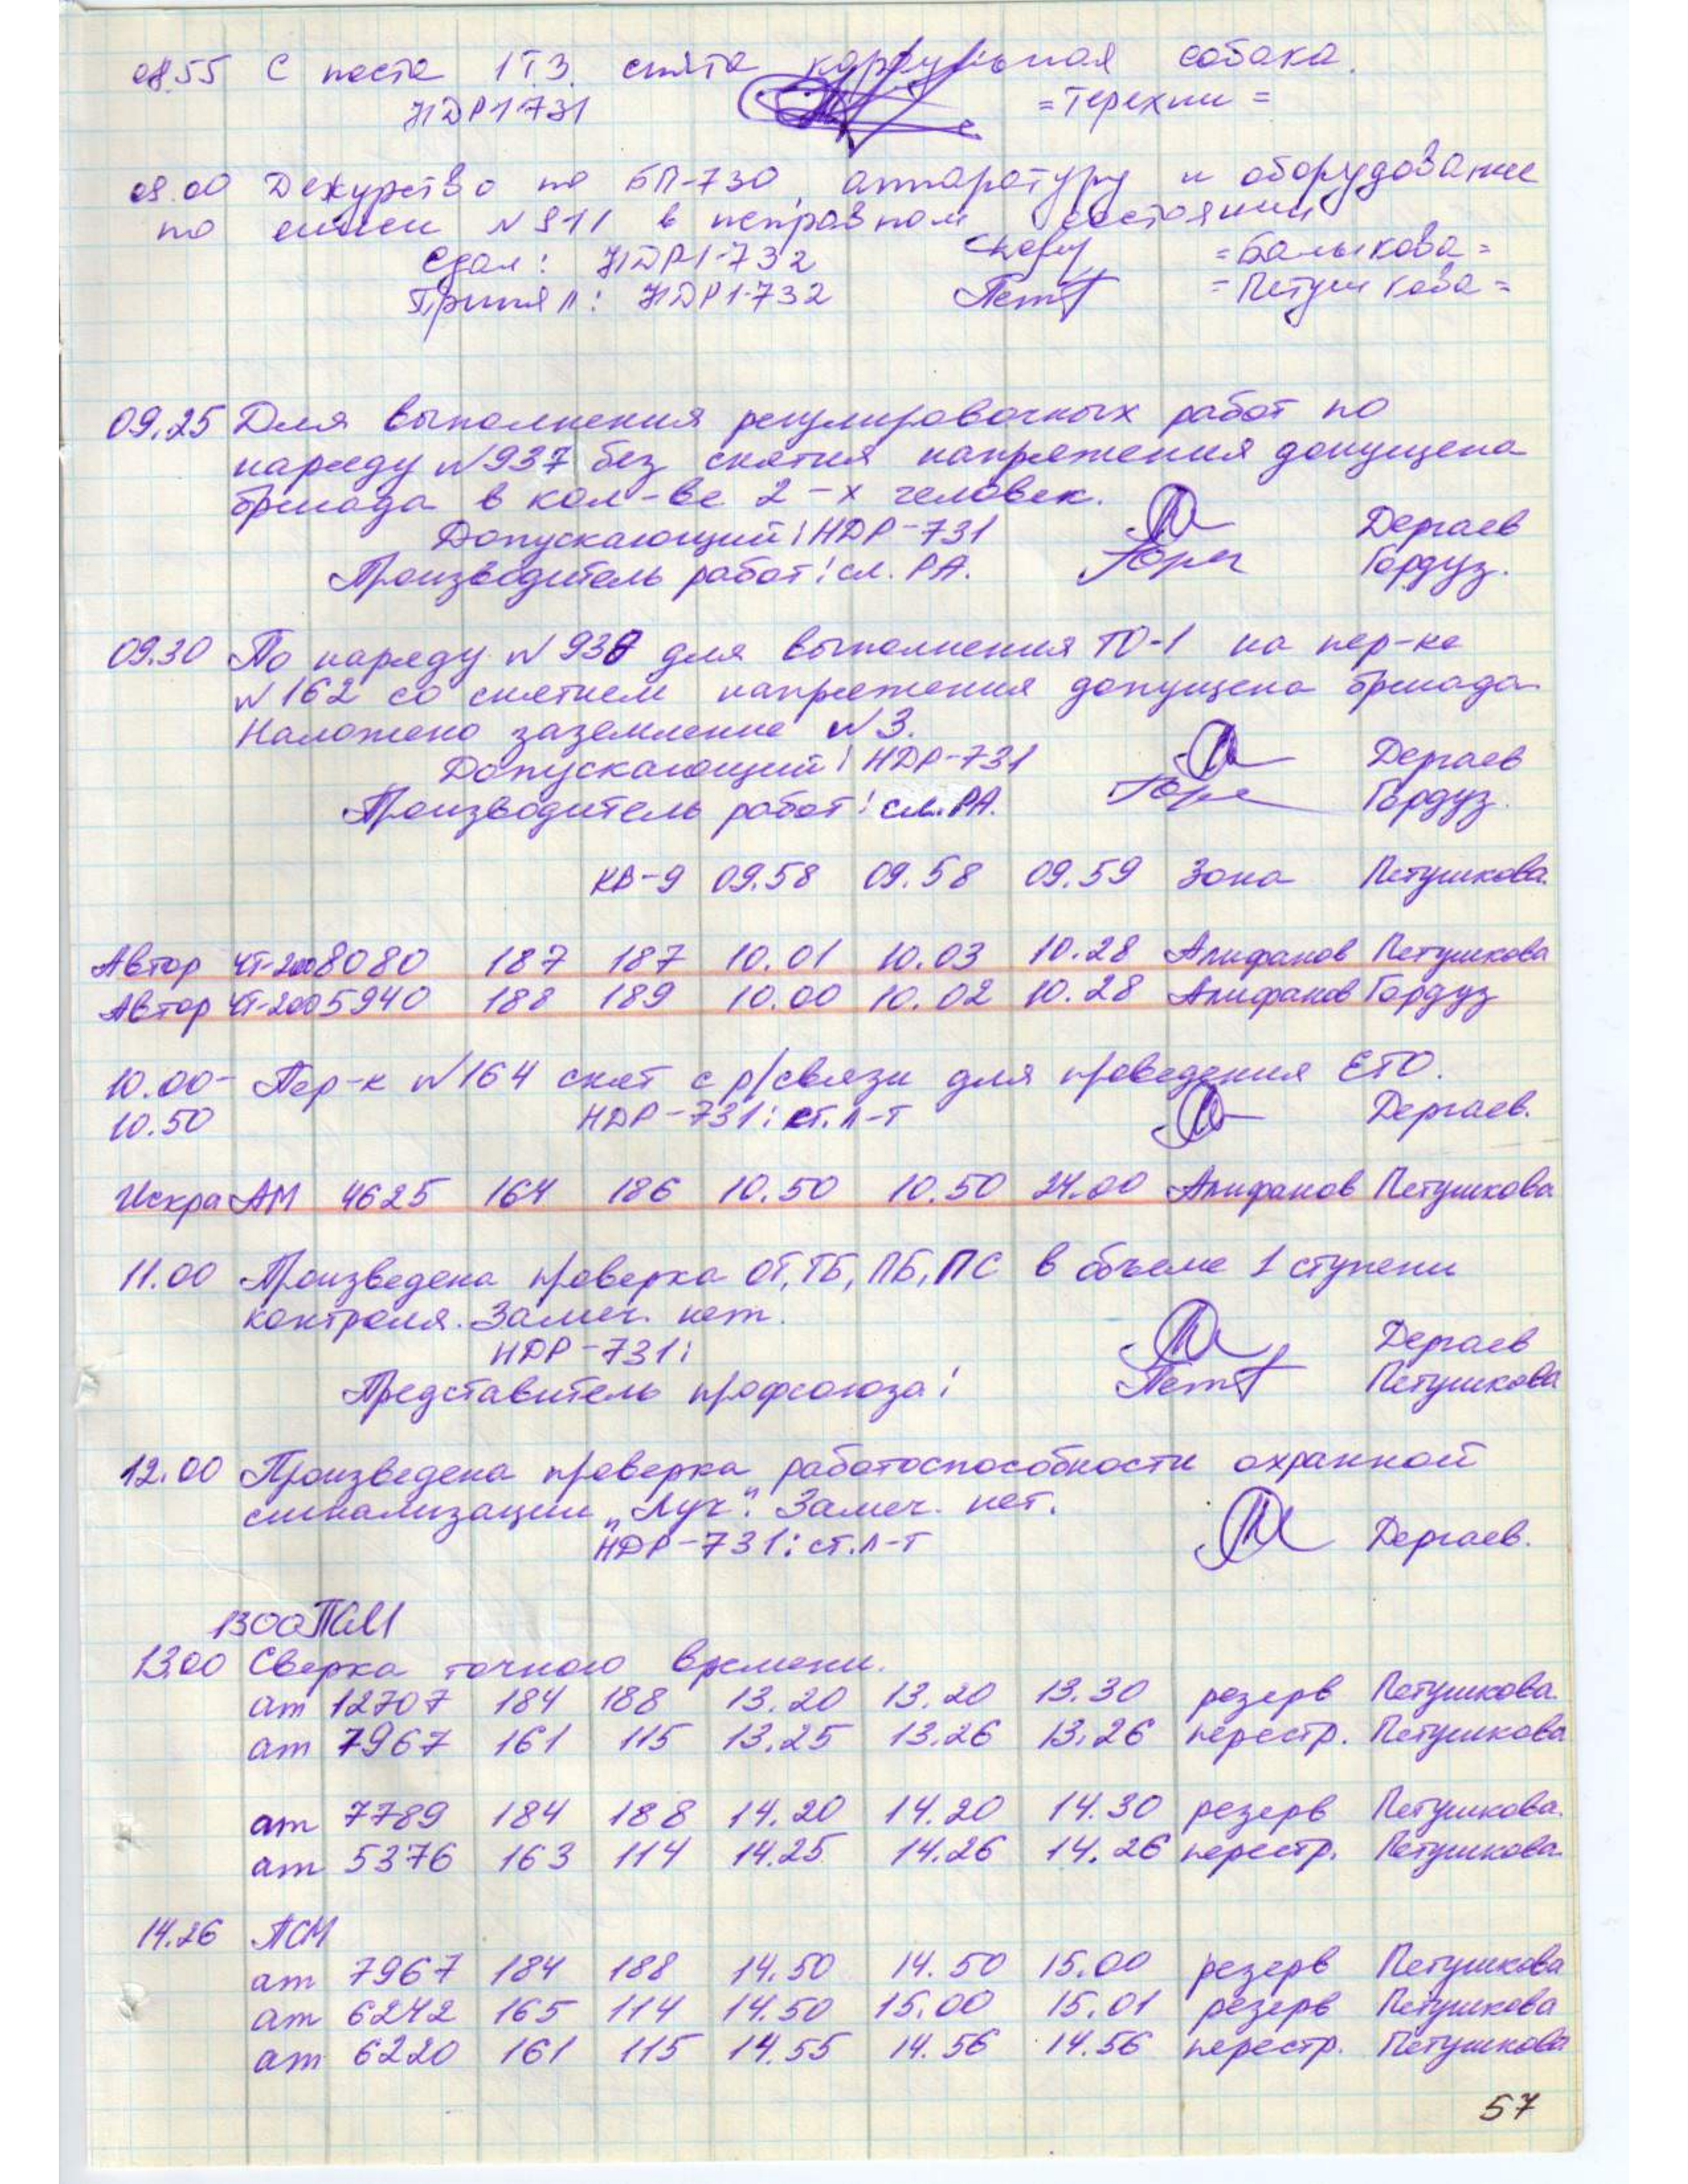 08.55 С поста 1ТЗ снята караульная собака.
НДР1-731 =Терехин=
08.00 Дежурство по БП-730, аппаратуру и оборудование
по описи №911 в исправном состоянии
Сдал: НДР1-732 =Балыкова=
Принял: НДР1-732 =Петушкова=
09.25 Для выполнения регулировочных работ по
наряду №937 без снятия напряжения допущена
бригада в кол-ве 2-х человек.
Допускающий: НДР-731 Дергаев
Производитель работ: см. РА. Гордуз.
09.30 По наряду №938 для выполнения ТО-1 на пер-ке
№162 со снятием напряжения допущена бригада.
Наложено заземление №3.
Допускающий: НДР-731 Дергаев
Производитель работ: см. РА. Гордуз.
КВ-9 09.58 09.58 09.59 Зона Петушкова.
Автор ЧТ-200 8080 187 187 10.01 10.03 10.28 Алифанов Петушкова
Автор ЧТ-200 5940 188 189 10.00 10.02 10.28 Алифанов Гордуз
10.00- Пер-к №164 снят с р/связи для проведения ЕТО.
10.50 НДР-731: ст. л-т Дергаев.
Искра АМ 4625 164 186 10.50 10.50 24.00 Алифанов Петушкова
11.00 Произведена проверка ОТ, ТБ, ПБ, ПС в объеме 1 ступени
контроля. Замеч. нет.
НДР-731: Дергаев
Представитель профсоюза: Петушкова
12.00 Произведена проверка работоспособности охранной
сигнализации „Луч". Замеч. нет.
НДР-731: ст. л-т Дергаев.
1300 ПСМ
13.00 Сверка точного времени.
ат 12707 184 188 13.20 13.20 13.30 резерв Петушкова.
ат 7967 161 115 13.25 13.26 13.26 перестр. Петушкова
ат 7789 184 188 14.20 14.20 14.30 резерв Петушкова.
ат 5376 163 114 14.25 14.26 14.26 перестр. Петушкова.
14.26 ПСМ
ат 7967 184 188 14.50 14.50 15.00 резерв Петушкова
ат 6242 165 114 14.50 15.00 15.01 резерв Петушкова
ат 6220 161 115 14.55 14.56 14.56 перестр. Петушкова
57